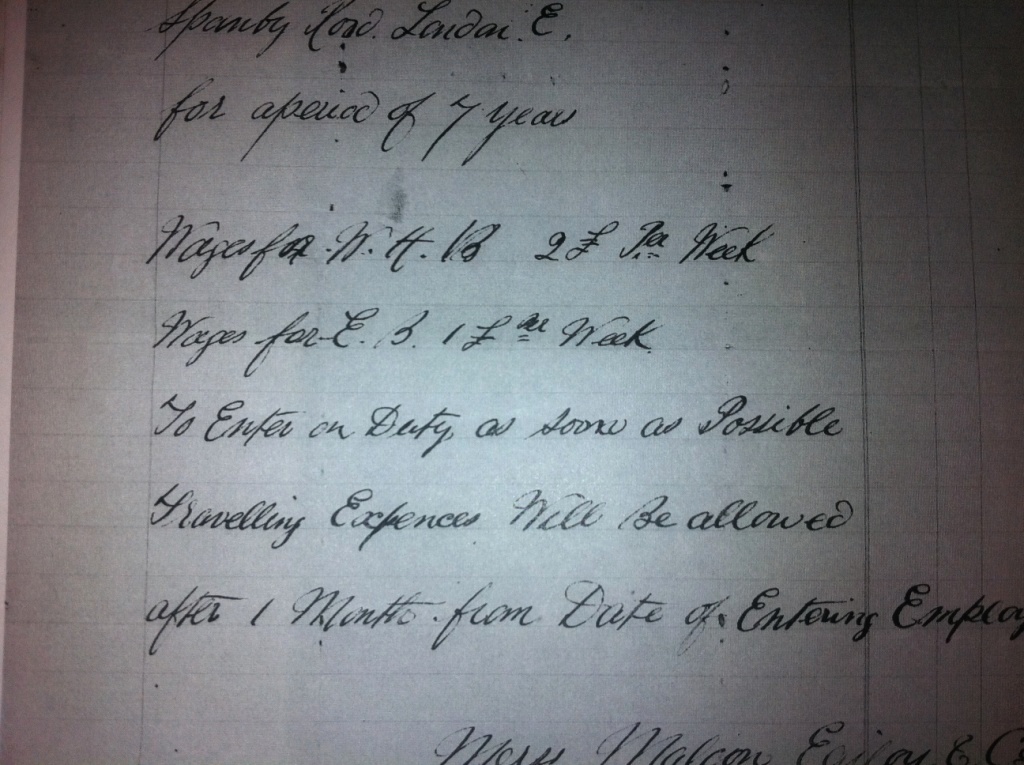 Spanby Road. London. E.
for a period of 7 years
Wages for W. H. B 2 £ Per Week
Wages for E. B. 1 £ Per Week.
To Enter on Duty as soone as Possible
Travelling Expences Will Be allowed
after 1 Month from Date of Entering Employ
Mess Malcom